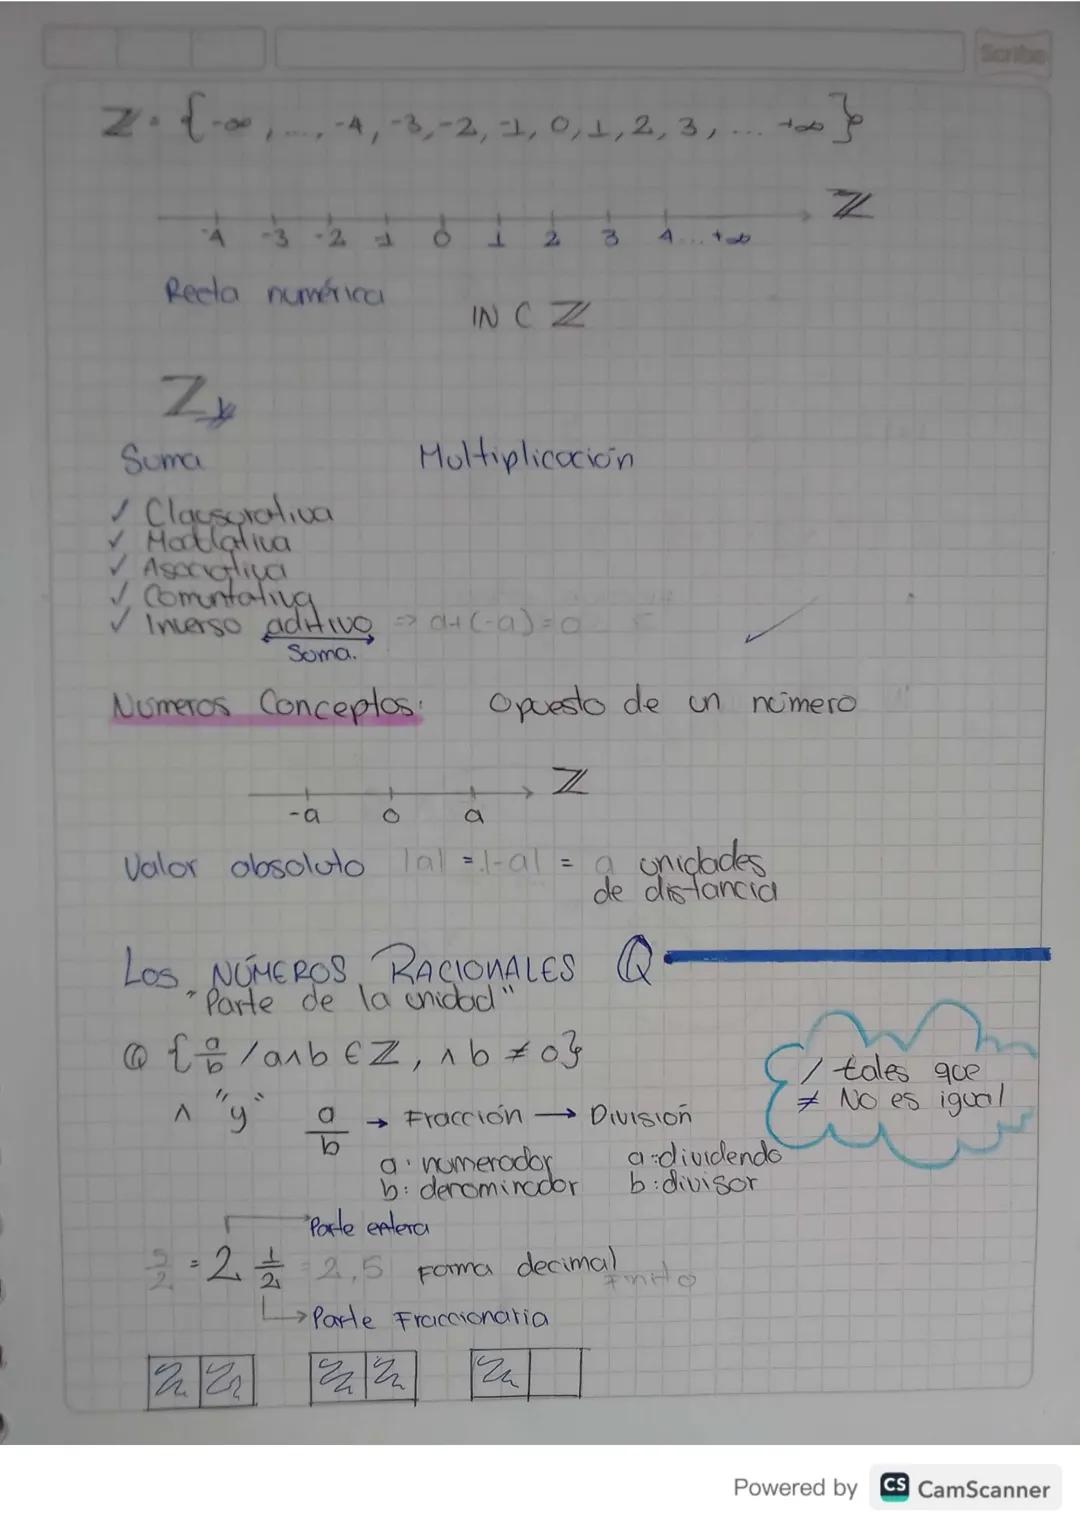 Scribe
Z = {-∞, ..., -4, -3, -2, -1, 0, 1, 2, 3, ... +∞}
ℤ
-4 -3 -2 -1 0 1 2 3 4 ... +∞
Recta numérica
IN C ℤ
ℤ
Suma Multiplicación
✓ Clausurativa
✓ Modulativa
✓ Asociativa
✓ Conmutativa
✓ Inverso aditivo => a+(-a)=0
Suma.
Números Conceptos: Opuesto de un número
ℤ
-a 0 a
Valor absoluto |a| = |-a| = a unidades
de distancia
Los NÚMEROS RACIONALES Q
"Parte de la unidad"
Q {a/b / a∧b ∈ ℤ, ∧ b ≠ 0}
/ tales que
≠ No es igual
∧ "y" a/b → Fracción → División
a: numerador a: dividendo
b: denominador b: divisor
Parte entera
5/2 = 2 1/2 = 2,5 Forma decimal
Finito
Parte Fraccionaria
Powered by CS CamScanner